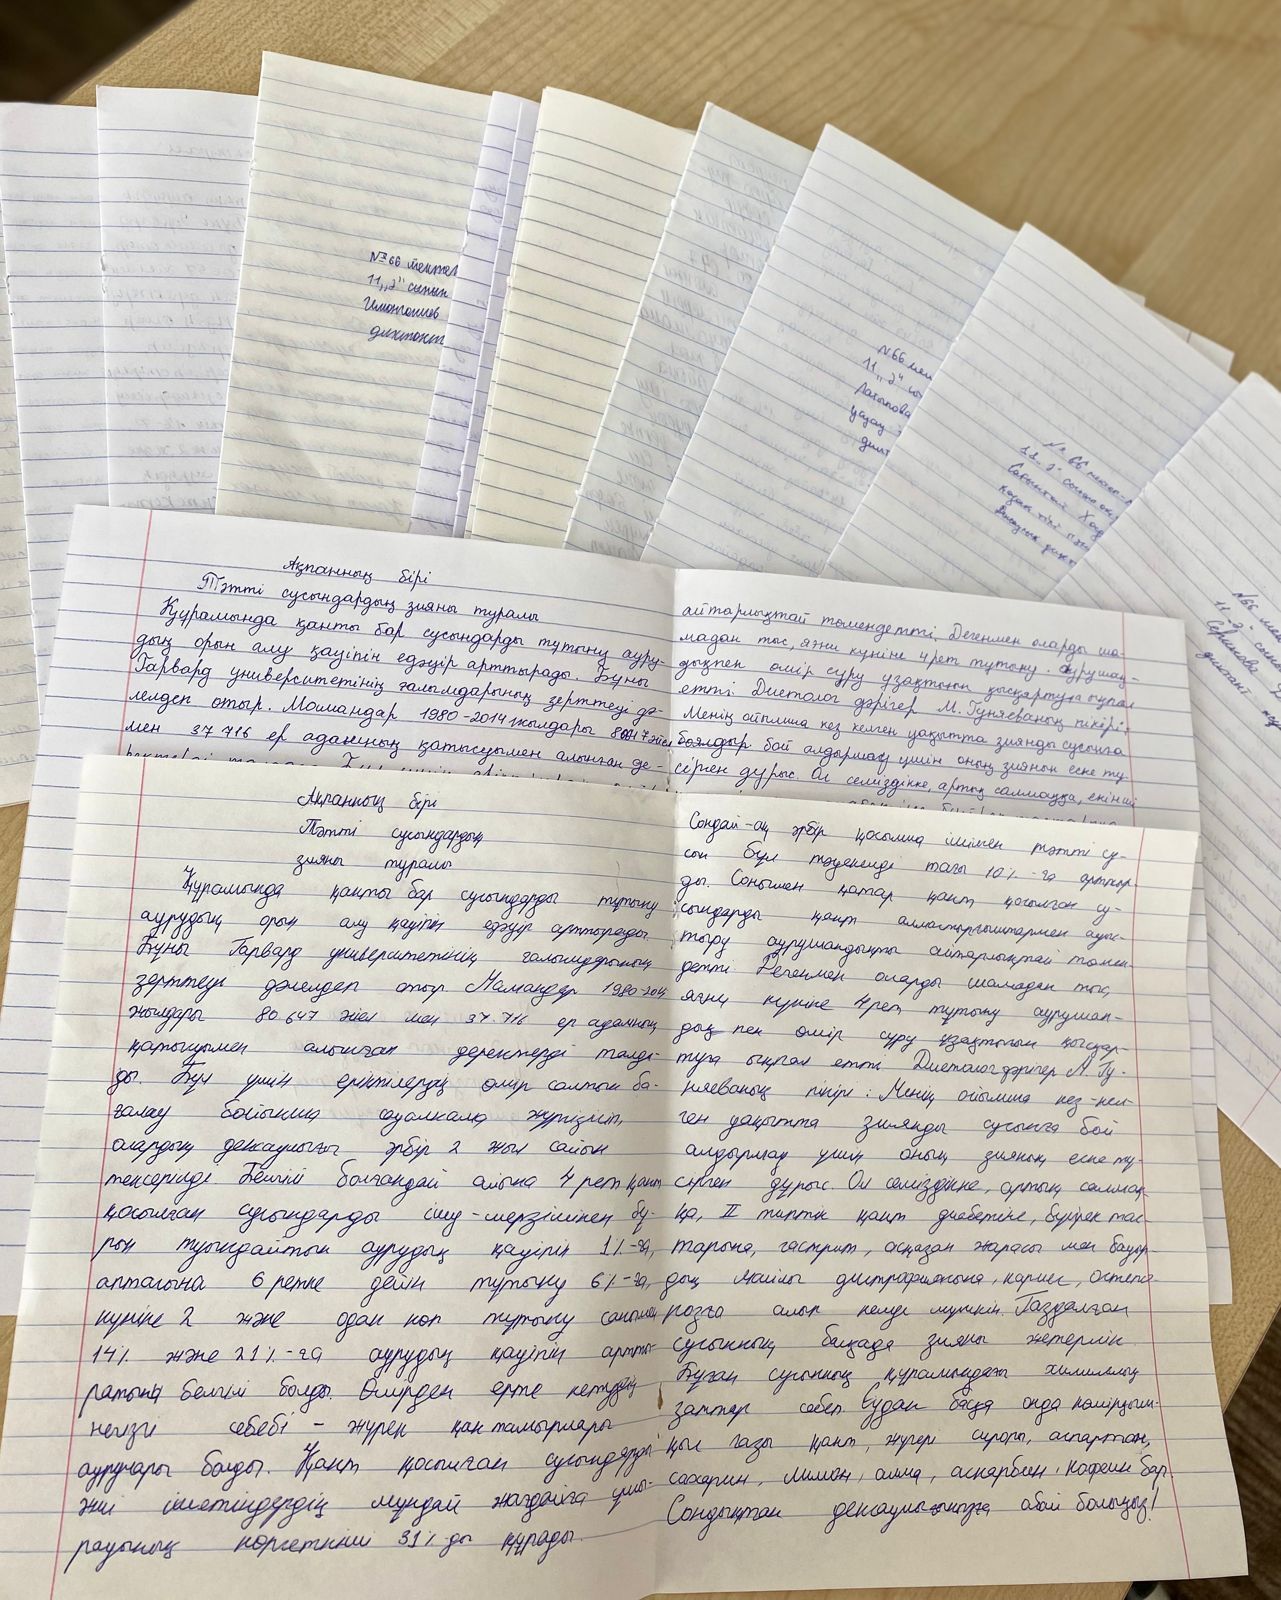 №66 мектеп
11 "Ә" сынып
диктант
№66 мек
11 "Ә" сы
Латыпова
дикт
№ 66 мектеп
11 "Ә" сынып
қазақ тілі
№66 мек
11 "Ә" сынып
Серикова
диктант
Ақпанның бірі
Тәтті сусындардың зияны туралы
Құрамында қанты бар сусындарды тұтыну ауру-
дың орын алу қауіпін едәуір арттырады. Бұны
Гарвард университетінің ғалымдарының зерттеуі дә-
лелдеп отыр. Мамандар 1980-2014 жылдары
мен 37 716 ер адамның қатысуымен алынған де-
айтарлықтай төмендетті. Дегенмен оларды ша-
мадан тыс, яғни күніне 4 рет тұтыну аурушаң-
дықпен өмір сүру ұзақтығын қысқартуға ықпал
етті. Диетолог дәрігер М. Гуняеваның пікірі:
Менің ойымша кез келген уақытта зиянды сусынға
бой алдырмау үшін оның зиянын еске тү-
сірген дұрыс. Ол семіздікке, артық салмаққа, екінші
Ақпанның бірі
Тәтті сусындардың
зияны туралы
Құрамында қанты бар сусындарды тұтыну
аурудың орын алу қауіпін едәуір арттырады.
Бұны Гарвард университетінің ғалымдарының
зерттеуі дәлелдеп отыр Мамандар 1980-2014
жылдары 80 647 әйел мен 37.716 ер адамның
қатысуымен алынған деректерді талда-
ды. Бұл үшін еріктілердің өмір салтын ба-
ғалау бойынша сауалнама жүргізіліп,
олардың денсаулығы әрбір 2 жыл сайын
тексерілді Белгілі болғандай айына 4 рет қант
қосылған сусындарды ішу - мерзімінен бұ-
рын туындайтын аурудың қауіпін 1%-ға,
аптасына 6 ретке дейін тұтыну 6%-ға,
күніне 2 және одан көп тұтыну сәйкес
14% және 21%-ға аурудың қауіпін артты-
ратыны белгілі болды. Өмірден ерте кетудің
негізгі себебі - жүрек қан тамырлары
аурулары болды. Қант қосылған сусындарды
жиі ішетіндердің мұндай жағдайға ұшы-
рауының көрсеткіші 31%-ды құрады.
Сондай-ақ әрбір қосымша ішімен тәтті су-
сын бұл тәуекелді тағы 10%-ға арттыр-
ды. Сонымен қатар қант қосылған су-
сындарды қант алмастырғыштармен ауыс-
тыру аурушаңдықты айтарлықтай төмен-
детті Дегенмен оларды шамадан тыс,
яғни күніне 4 рет тұтыну аурушаң-
дық пен өмір сүру ұзақтығын қысқар-
туға ықпал етті. Диетолог дәрігер М. Гу-
няеваның пікірі: Менің ойымша кез-кел-
ген уақытта зиянды сусынға бой
алдырмау үшін оның зиянын еске тү-
сірген дұрыс. Ол семіздікке, артық салмақ-
қа, II типтік қант диабетіне, бүйрек тас-
тарына, гастрит, асқазан жарасы мен бауыр-
дың майлы дистрофиясына, кариес, остепо-
розға алып келуі мүмкін. Газдалған
сусынның басқада зияны жетерлік.
Бұған сусынның құрамындағы химиялық
заттар себеп. Судан басқа онда көмірқыш-
қыл газы қант, жүгері сиропы, аспартам,
сахарин, лимон, алма, аскарбин, кофеин бар
Сондықтан денсаулығыңызға абай болыңыз!